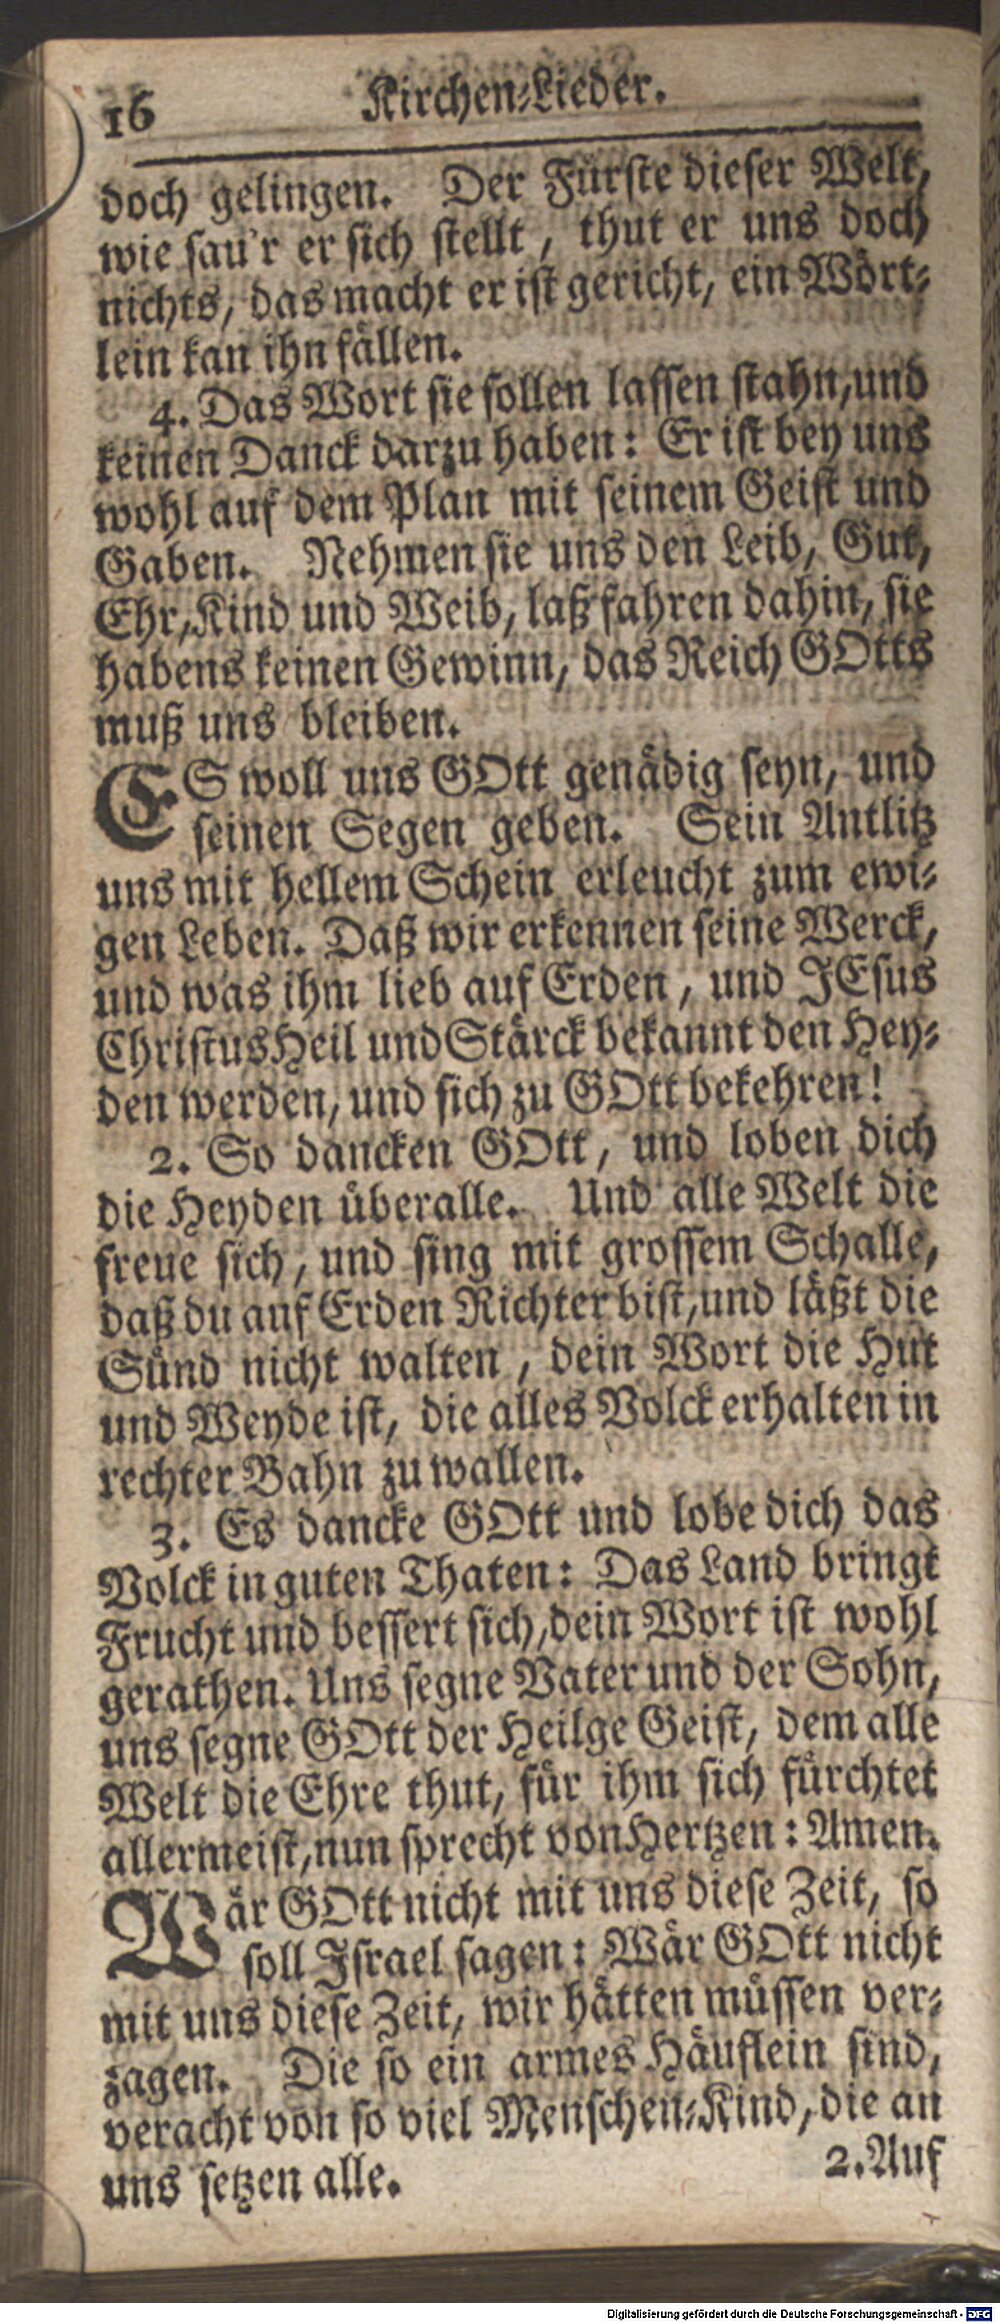 16 Kirchen-Lieder.
doch gelingen. Der Fürste dieser Welt,
wie sau'r er sich stellt, thut er uns doch
nichts, das macht er ist gericht, ein Wört-
lein kan ihn fällen.
4. Das Wort sie sollen lassen stahn, und
keinen Danck darzu haben: Er ist bey uns
wohl auf dem Plan mit seinem Geist und
Gaben. Nehmen sie uns den Leib, Gut,
Ehr, Kind und Weib, laß fahren dahin, sie
habens keinen Gewinn, das Reich GOtts
muß uns bleiben.
ES woll uns GOtt genädig seyn, und
seinen Segen geben. Sein Antlitz
uns mit hellem Schein erleucht zum ewi-
gen Leben. Daß wir erkennen seine Werck,
und was ihm lieb auf Erden, und JEsus
Christus Heil und Stärck bekannt den Hey-
den werden, und sich zu GOtt bekehren!
2. So dancken GOtt, und loben dich
die Heyden überalle. Und alle Welt die
freue sich, und sing mit grossem Schalle,
daß du auf Erden Richter bist, und läßt die
Sünd nicht walten, dein Wort die Hut
und Weyde ist, die alles Volck erhalten in
rechter Bahn zu wallen.
3. Es dancke GOtt und lobe dich das
Volck in guten Thaten: Das Land bringt
Frucht und bessert sich, dein Wort ist wohl
gerathen. Uns segne Vater und der Sohn,
uns segne GOtt der Heilge Geist, dem alle
Welt die Ehre thut, für ihm sich fürchtet
allermeist, nun sprecht von Hertzen: Amen.
Wär GOtt nicht mit uns diese Zeit, so
soll Israel sagen: Wär GOtt nicht
mit uns diese Zeit, wir hätten müssen ver-
zagen. Die so ein armes Häuflein sind,
veracht von so viel Menschen-Kind, die an
uns setzen alle. 2. Auf
Digitalisierung gefördert durch die Deutsche Forschungsgemeinschaft - DFG